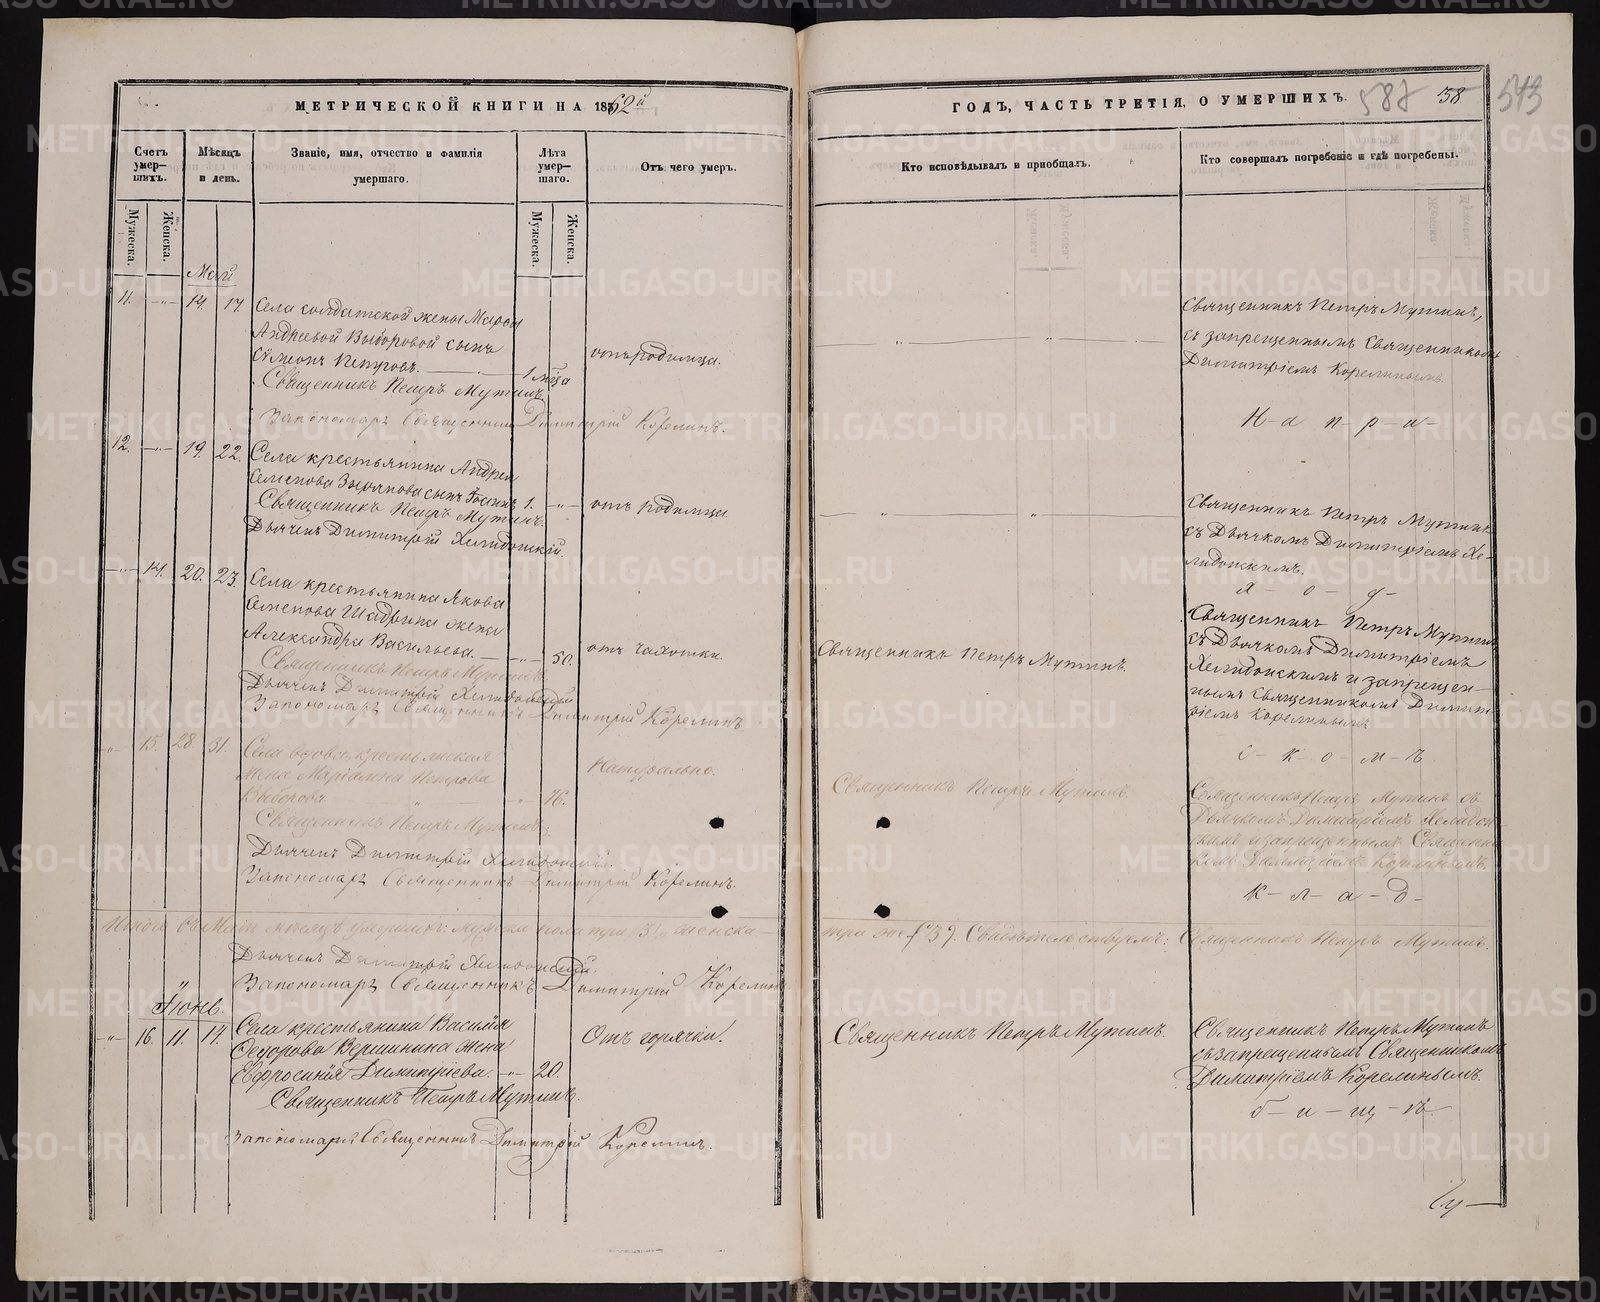 МЕТРИЧЕСКОЙ КНИГИ НА 1862й
Счетъ умер-шихъ.
Мѣсяцъ и день.
Званіе, имя, отчество и фамилія умершаго.
Лѣта умер-шаго.
Отъ чего умеръ.
Мужеска.
Женска.
Мужеска.
Женска.
Май
11. 14. 17. Села солдатской жены Марѳы
Андреевой Выборовой сынъ
Сѵмеонъ Петровъ. 1 мѣца отъ родимца.
Священникъ Петръ Мутинъ.
Запономаря Священникъ Димитрій Корелинъ.
12. 19. 22. Села крестьянина Андрея
Семенова Зырянова сынъ Іоаннъ 1. отъ родимца
Священникъ Петръ Мутинъ.
Дьячекъ Димитрій Хелидонскій.
14. 20. 23. Села крестьянина Якова
Семенова Шадрина жена
Александра Васильева. 50. отъ чахотки.
Священникъ Петръ Мутинъ.
Дьячекъ Димитрій Хелидонскій
Запономаря Священникъ Димитрій Корелинъ.
15. 28. 31. Села вдова крестьянская
жена Маріамна Петрова
Выборова 76. Натурально.
Священникъ Петръ Мутинъ.
Дьячекъ Димитрій Хелидонскій.
Запономаря Священникъ Димитрій Корелинъ.
Итого въ Маѣ мѣсяцѣ умершихъ: мужеска пола три /3/, женска
Дьячекъ Димитрій Хелидонскій.
Запономаря Священникъ Димитрій Корелинъ
Іюнь.
16. 11. 14. Села крестьянина Василія
Ѳедорова Вершинина жена
Евфросинія Димитріева. 20. Отъ горячки.
Священникъ Петръ Мутинъ.
Запономаря Священникъ Димитрій Корелинъ.
ГОДЪ, ЧАСТЬ ТРЕТІЯ, О УМЕРШИХЪ.
587
38
543
Кто исповѣдывалъ и пріобщалъ.
Кто совершалъ погребеніе и гдѣ погребены.
Священникъ Петръ Мутинъ,
съ запрещеннымъ Священникомъ
Димитріемъ Корелинымъ.
Н-а п-р-и-
Священникъ Петръ Мутинъ
съ Дьячкомъ Димитріемъ Хе-
лидонскимъ.
х- о- д-
Священникъ Петръ Мутинъ.
Священникъ Петръ Мутинъ
съ Дьячкомъ Димитріемъ
Хелидонскимъ и запрещен-
нымъ Священникомъ Димит-
ріемъ Корелинымъ
с-к-о-м-ъ
Священникъ Петръ Мутинъ.
Священникъ Петръ Мутинъ съ
Дьячкомъ Димитріемъ Хелидон-
скимъ и запрещеннымъ Священни-
комъ Димитріемъ Корелинымъ.
к-л-а-д-
три же /3/. Свидѣтельствуемъ: Священникъ Петръ Мутинъ.
Священникъ Петръ Мутинъ.
Священникъ Петръ Мутинъ
съ запрещеннымъ Священникомъ
Димитріемъ Корелинымъ.
б-и-щ-ѣ
METRIKI.GASO-URAL.RU